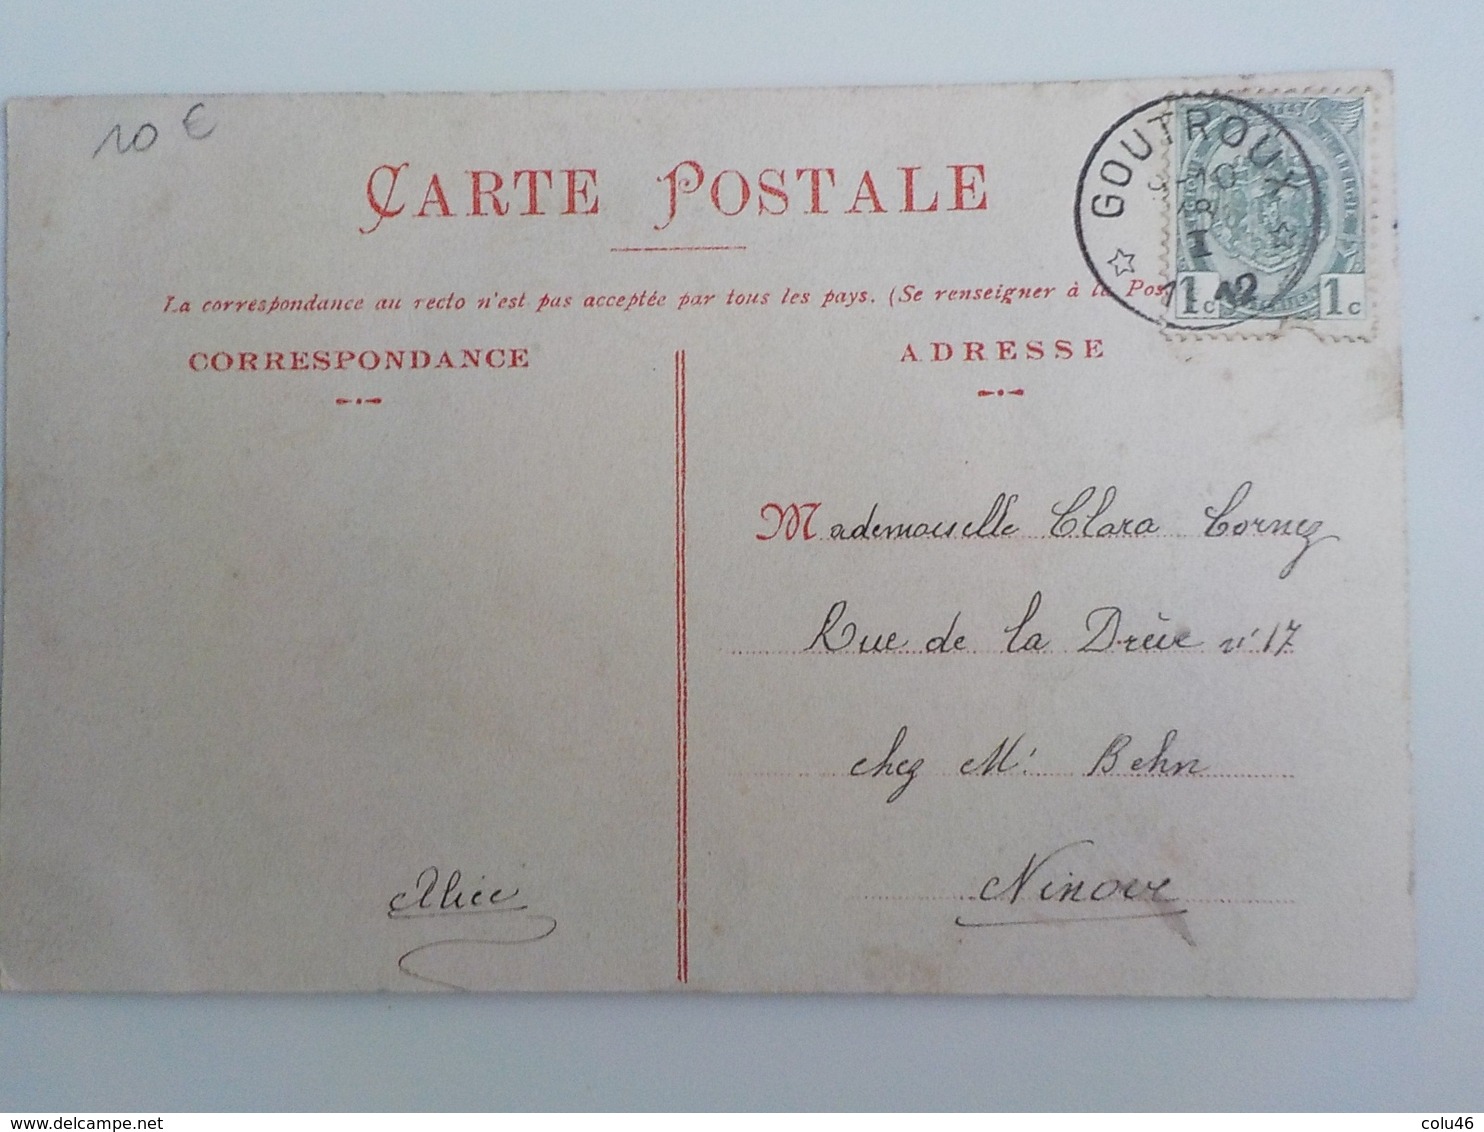 10 €
CARTE POSTALE
GOUTROUX
1c 1c
La correspondance au recto n'est pas acceptée par tous les pays. (Se renseigner à la Pos
CORRESPONDANCE
ADRESSE
Mademoiselle Clara Cornez
Rue de la Drève n° 17
chez Mr Behn
Alice
Ninove
delcampe.net
colu46